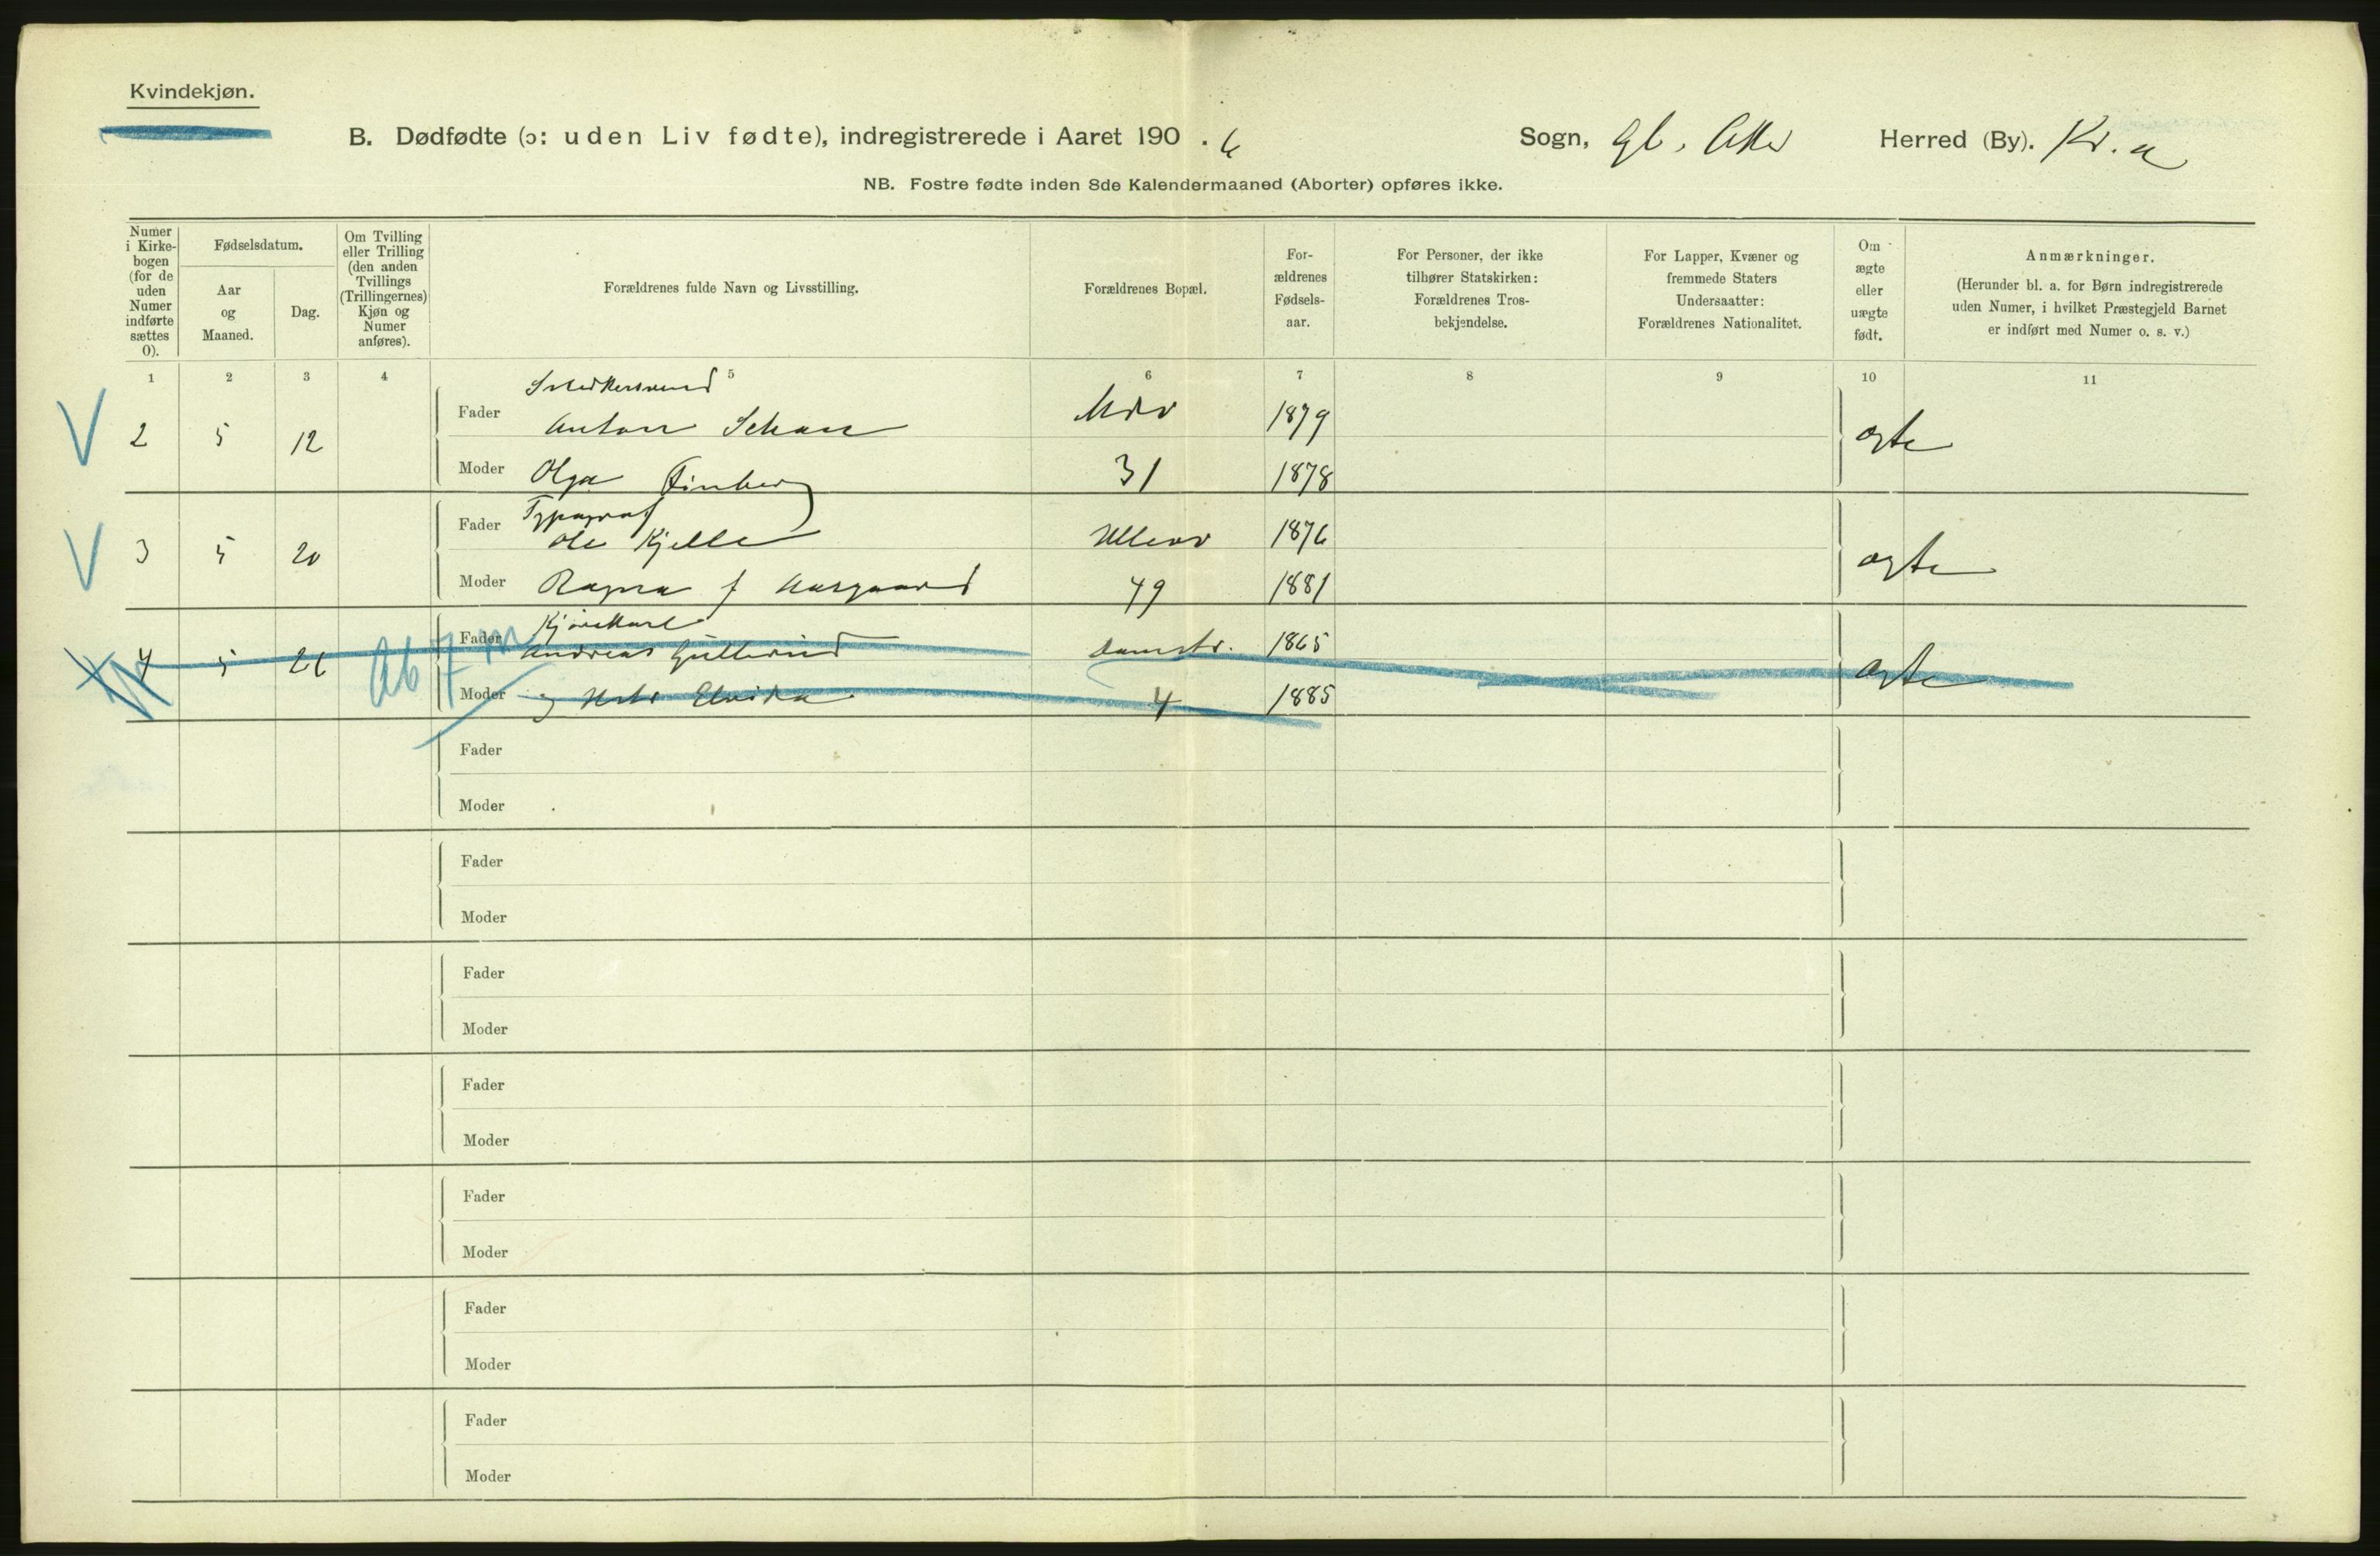 Kvindekjøn.
B. Dødfødte (ɔ: uden Liv fødte), indregistrerede i Aaret 190 . 6 Sogn, Gl. Aker Herred (By). Kr.a
NB. Fostre fødte inden 8de Kalendermaaned (Aborter) opføres ikke.
Numer i Kirke-bogen (for de uden Numer indførte sættes 0).
Fødselsdatum.
Aar og Maaned.
Dag.
Om Tvilling eller Trilling (den anden Tvillings (Trillingernes) Kjøn og Numer anføres).
Forældrenes fulde Navn og Livsstilling.
Forældrenes Bopæl.
For-ældrenes Fødsels-aar.
For Personer, der ikke tilhører Statskirken: Forældrenes Tros-bekjendelse.
For Lapper, Kvæner og fremmede Staters Undersaatter: Forældrenes Nationalitet.
Om ægte eller uægte født.
Anmærkninger.
(Herunder bl. a. for Børn indregistrerede uden Numer, i hvilket Præstegjeld Barnet er indført med Numer o. s. v.)
1 2 3 4 5 6 7 8 9 10 11
Snedkersvend
V 2 5 12 Fader Anton 1879 ægte
Moder Olga 31 1878
Typograf
V 3 5 20 Fader Ole Kjelle Ullevv 1876 ægte
Moder Ragna f Aasgaard 49 1881
Kjørekarl
4 5 26 Ab 7 m Fader Andreas Gullerud Damstr. 1865 ægte
Moder og Hst Elvika 4 1885
Fader
Moder
Fader
Moder
Fader
Moder
Fader
Moder
Fader
Moder
Fader
Moder
Fader
Moder